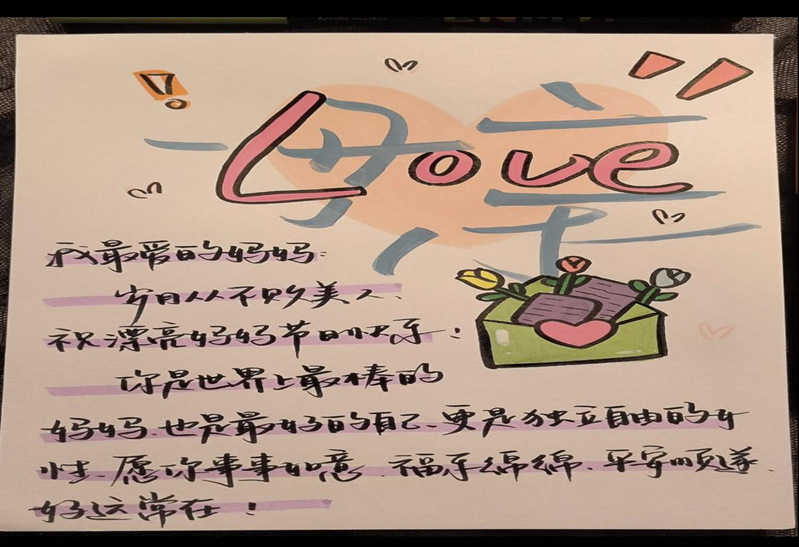 母亲
Love
我最爱的妈妈:
岁月从不败美人、
祝漂亮妈妈节日快乐!
你是世界上最棒的
妈妈、也是最好的自己、更是独立自由的女
性、愿你事事如意、福乐绵绵、平安顺遂、
好运常在!